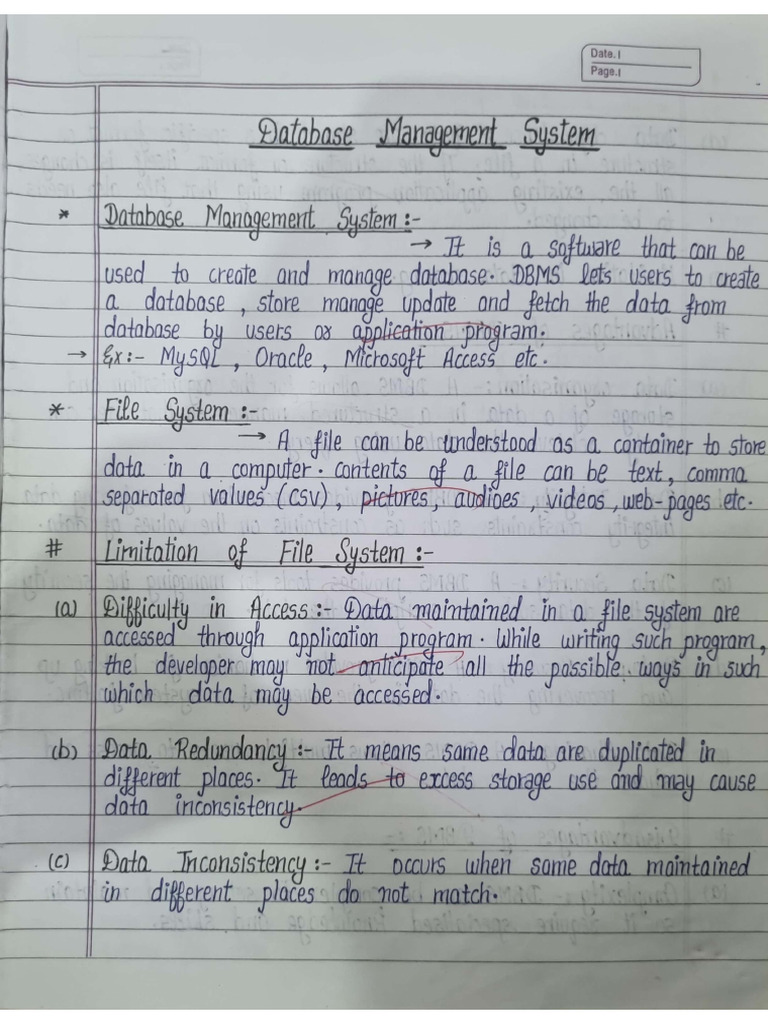 Date. |
Page. |
Database Management System
* Database Management System :-
→ It is a software that can be
used to create and manage database. DBMS lets users to create
a database, store manage update and fetch the data from
database by users or application program.
→ Ex:- MySQL, Oracle, Microsoft Access etc.
* File System :-
→ A file can be understood as a container to store
data in a computer. contents of a file can be text, comma
separated values (CSV), pictures, audioes, videos, web-pages etc.
# Limitation of File System :-
(a) Difficulty in Access :- Data maintained in a file system are
accessed through application program. While writing such program,
the developer may not anticipate all the possible ways in such
which data may be accessed.
(b) Data Redundancy :- It means same data are duplicated in
different places. It leads to excess storage use and may cause
data inconsistency.
(c) Data Inconsistency :- It occurs when same data maintained
in different places do not match.